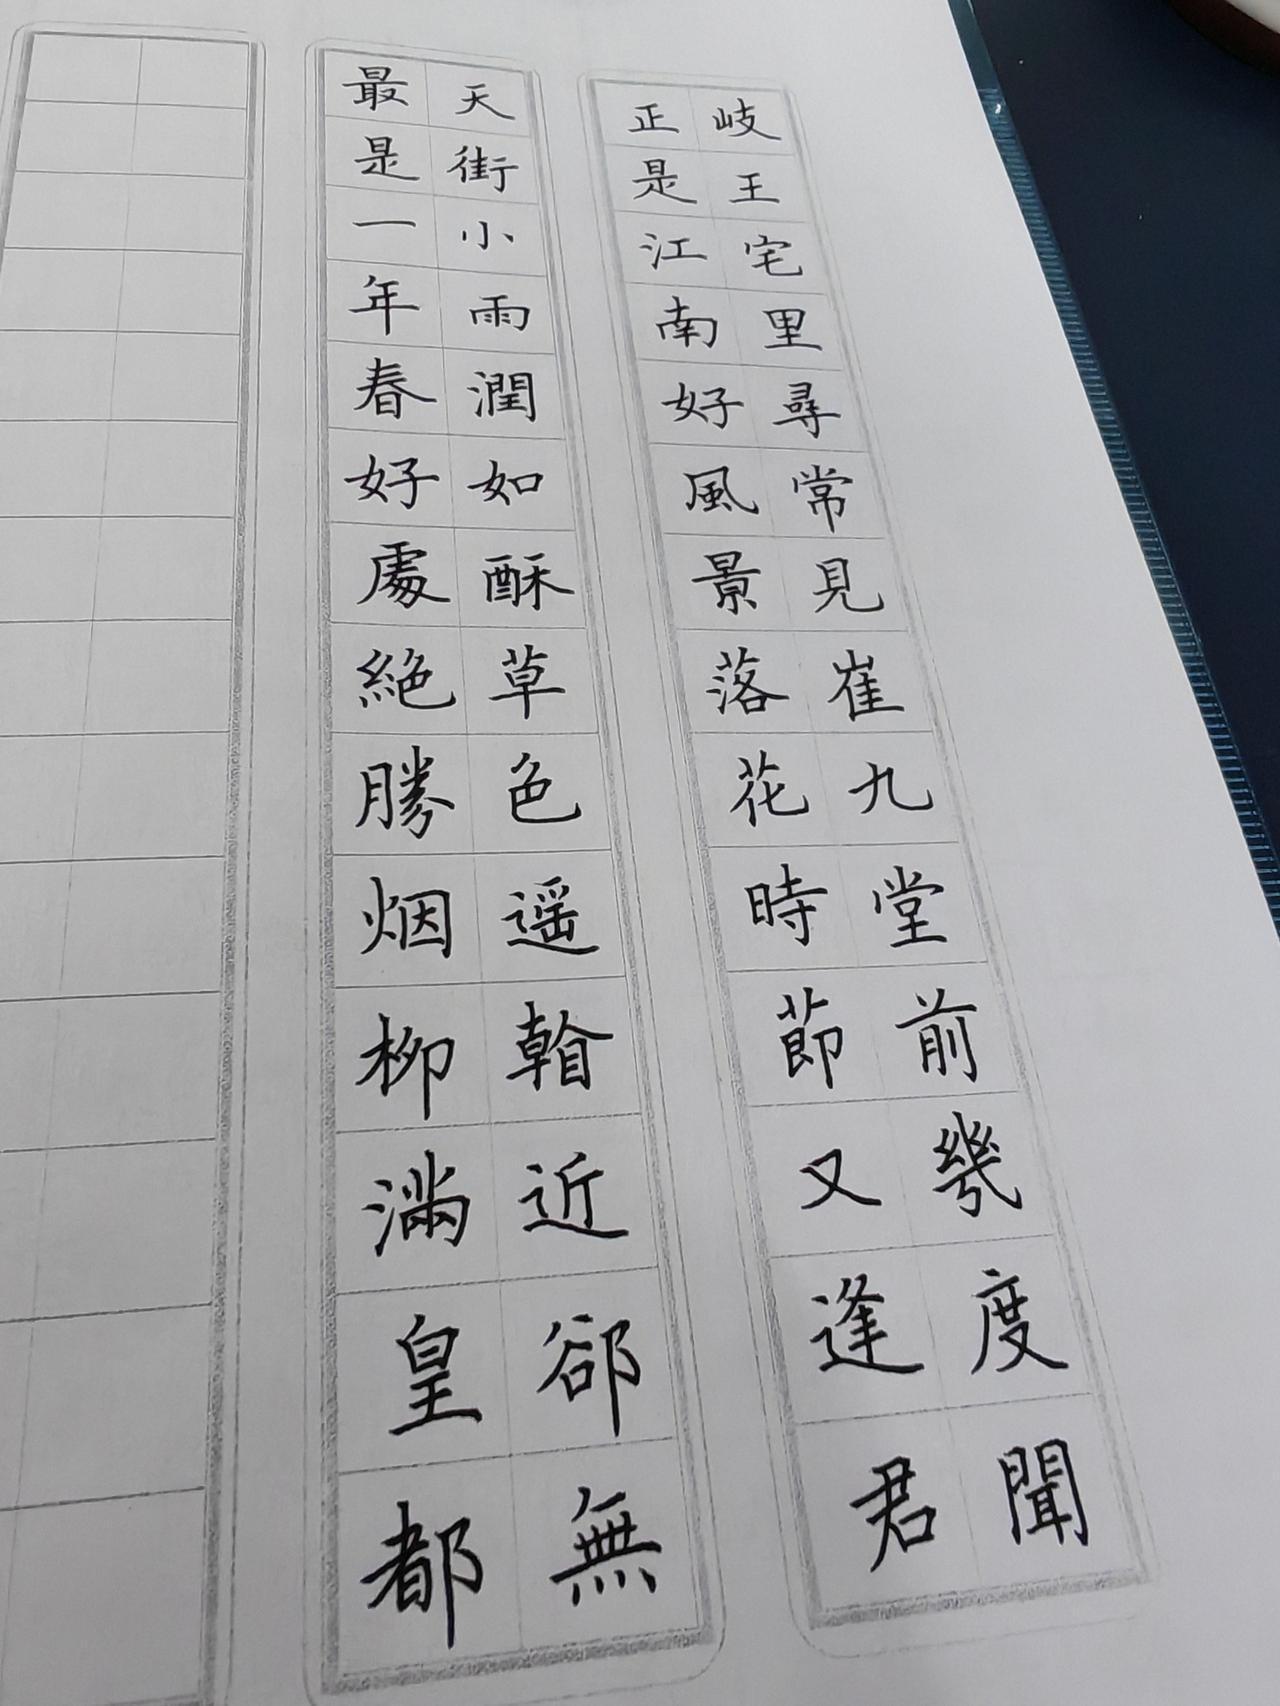 岐王宅里尋常見崔九堂前幾度聞
正是江南好風景落花時節又逢君
天街小雨潤如酥草色遥看近卻無
最是一年春好處絕勝烟柳滿皇都